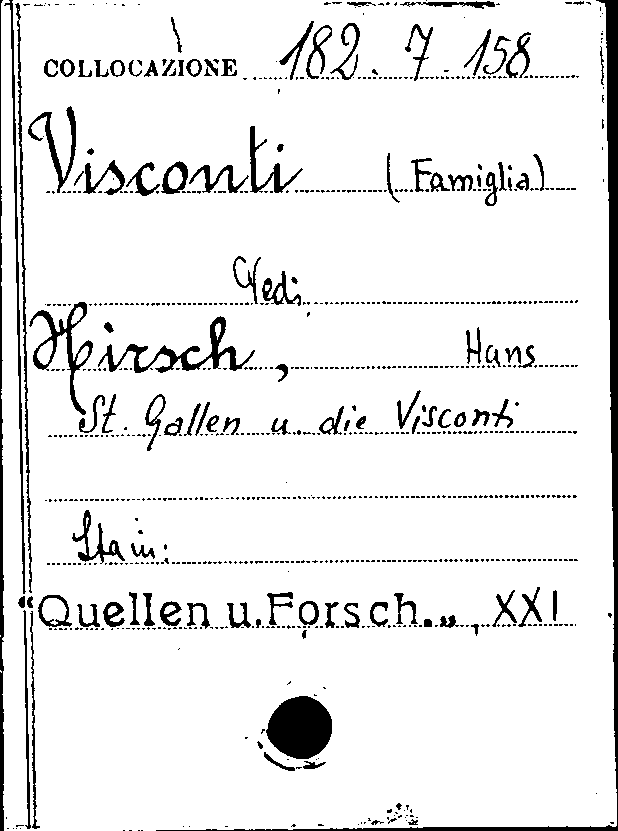 COLLOCAZIONE 182. 7. 158
Visconti (Famiglia)
Vedi
Hirsch, Hans
St. Gallen u. die Visconti
Sta in:
“Quellen u. Forsch.„, XXI